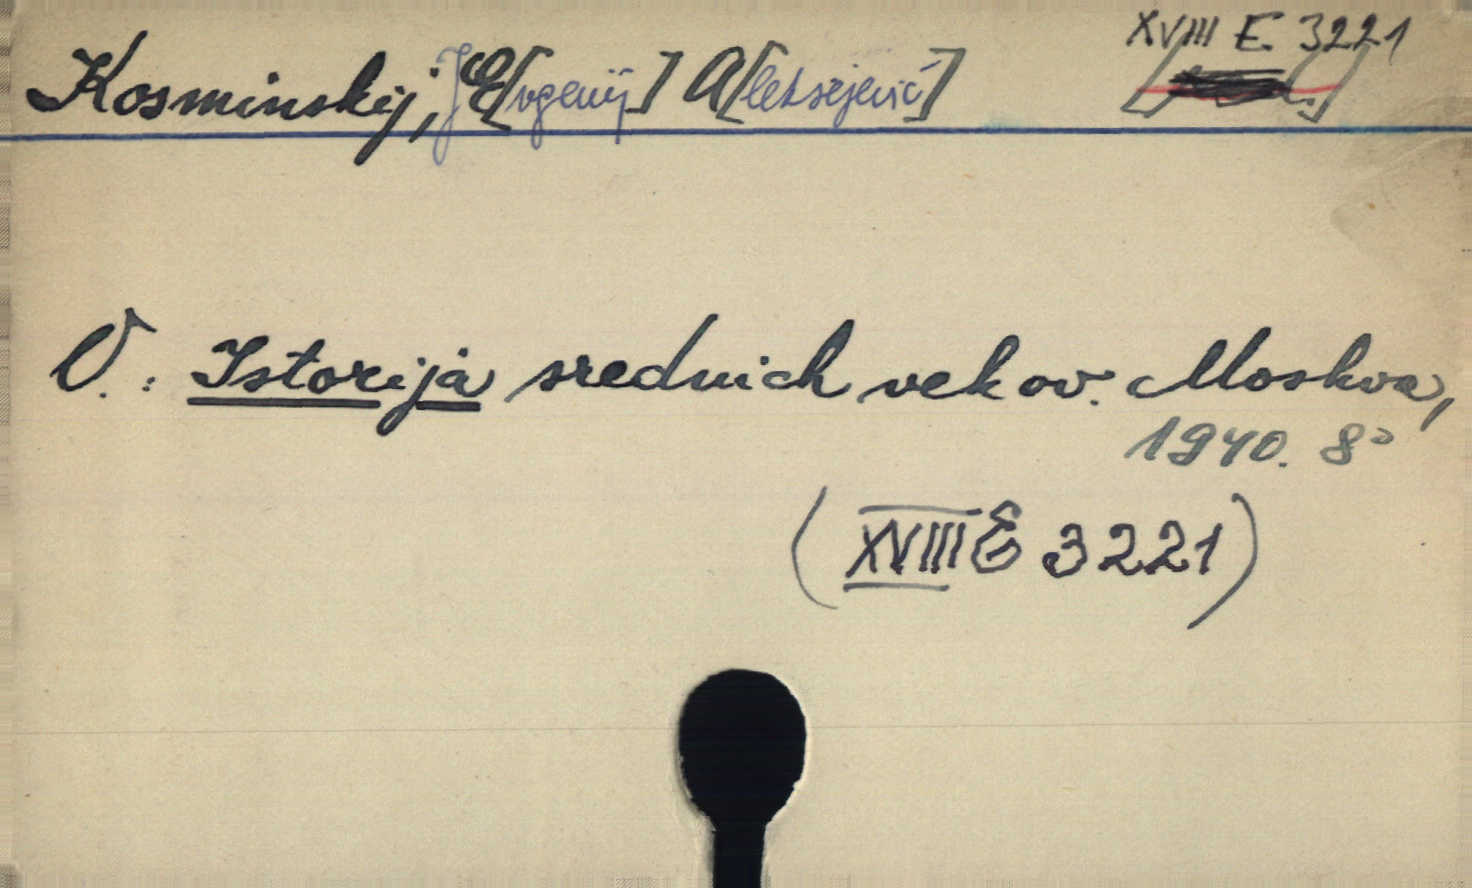 XVIII E 3221
Kosminskij, JE[vgenij] A[leksejevič]
V.: Istorija srednich vekov. Moskva,
1940. 8°
(XVIII E 3221)